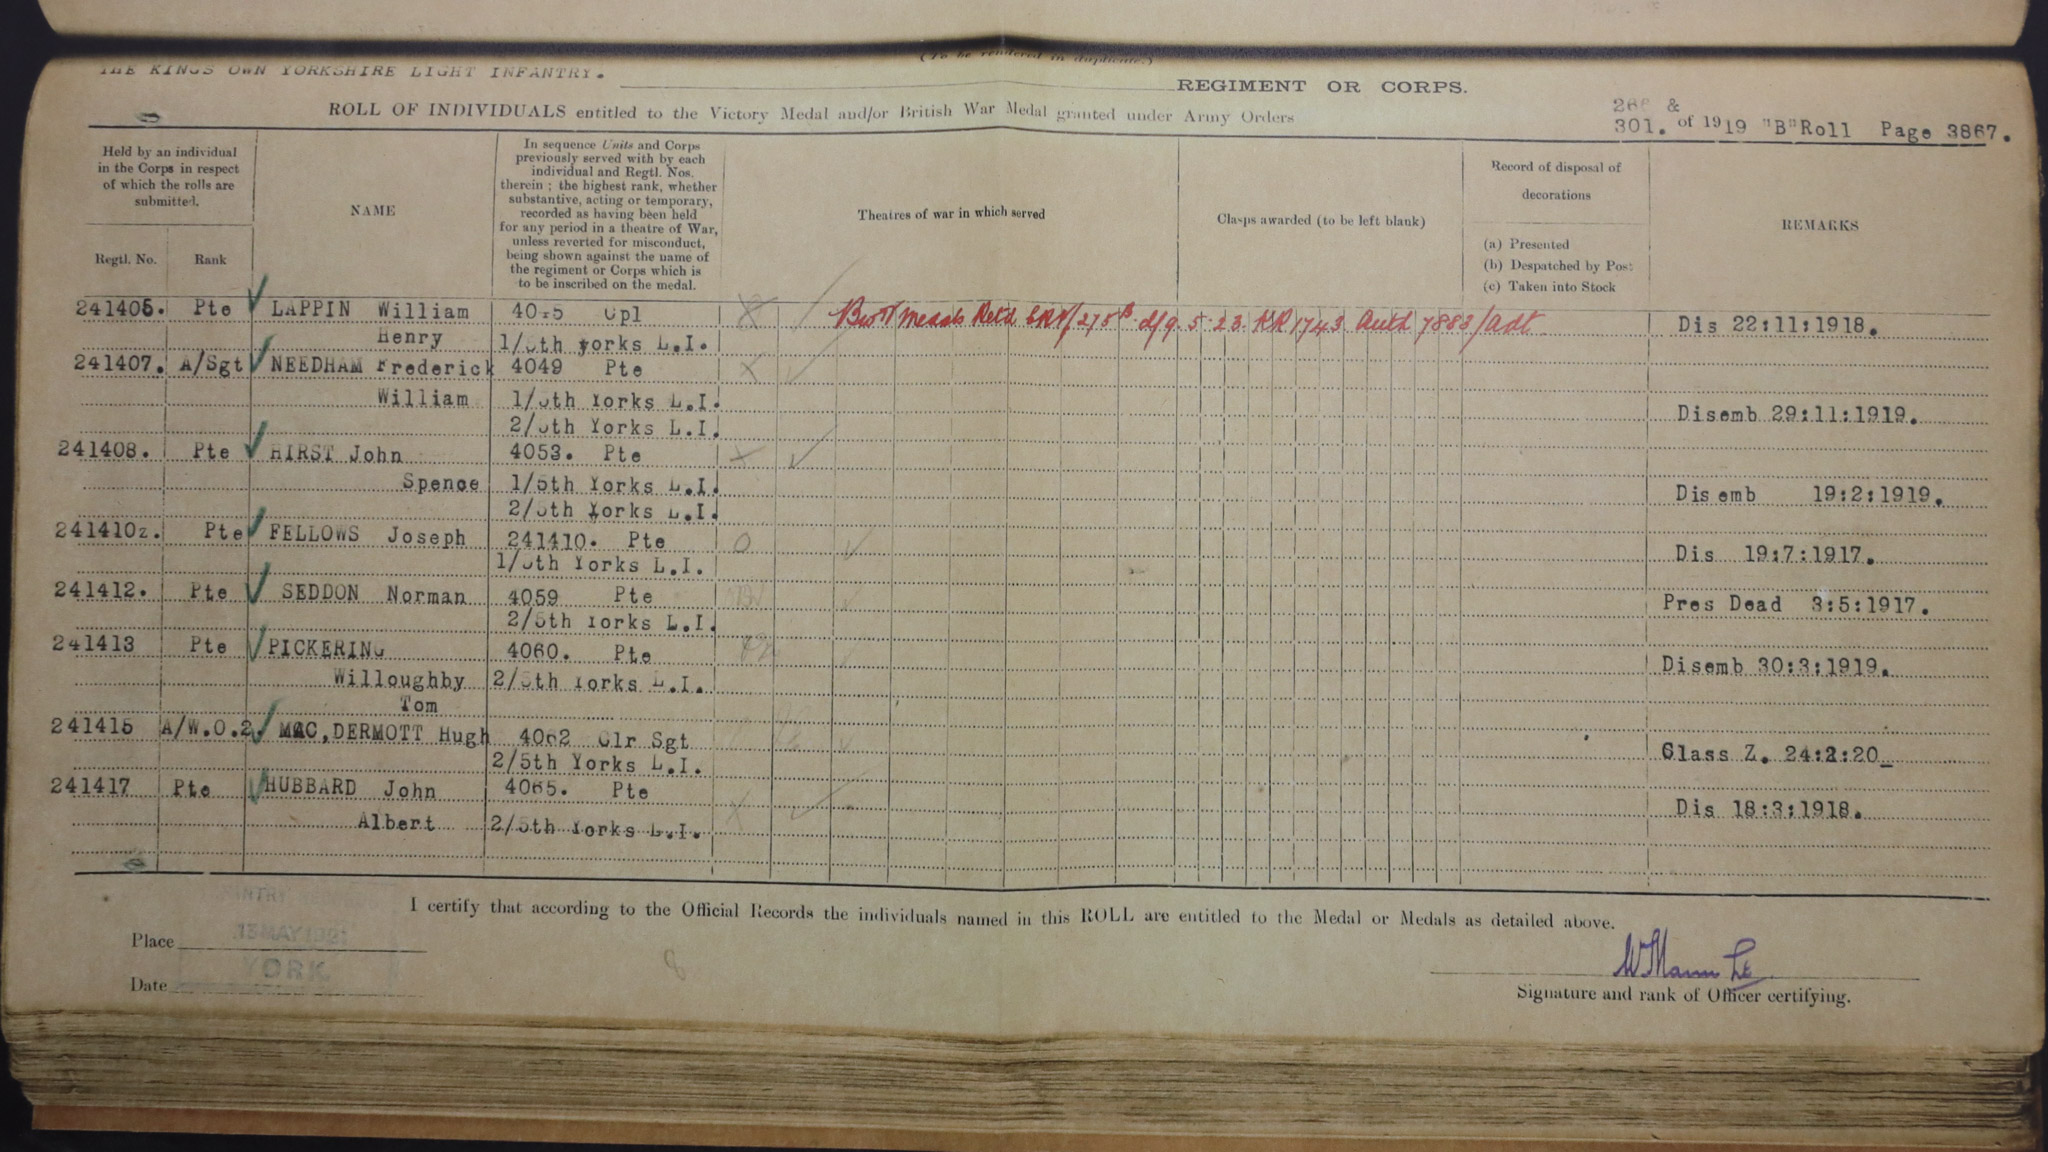 (To be rendered in duplicate.)
THE KINGS OWN YORKSHIRE LIGHT INFANTRY.
REGIMENT OR CORPS.
ROLL OF INDIVIDUALS entitled to the Victory Medal and/or British War Medal granted under Army Orders
266 &
301. of 1919 "B"Roll Page 3867.
Held by an individual
in the Corps in respect
of which the rolls are
submitted.
Regtl. No. Rank
NAME
In sequence Units and Corps
previously served with by each
individual and Regtl. Nos.
therein ; the highest rank, whether
substantive, acting or temporary,
recorded as having been held
for any period in a theatre of War,
unless reverted for misconduct,
being shown against the name of
the regiment or Corps which is
to be inscribed on the medal.
Theatres of war in which served
Clasps awarded (to be left blank)
Record of disposal of
decorations
(a) Presented
(b) Despatched by Post
(c) Taken into Stock
REMARKS
241405. Pte LAPPIN William 4045 Cpl Medals Retd 5 23 KR 1743 Auth 7883/Adt Dis 22:11:1918.
Henry 1/5th Yorks L.I.
241407. A/Sgt NEEDHAM Frederick 4049 Pte
William 1/5th Yorks L.I. Disemb 29:11:1919.
2/5th Yorks L.I.
241408. Pte HIRST John 4053. Pte
Spence 1/5th Yorks L.I. Disemb 19:2:1919.
2/5th Yorks L.I.
241410z. Pte FELLOWS Joseph 241410. Pte Dis 19:7:1917.
1/5th Yorks L.I.
241412. Pte SEDDON Norman 4059 Pte Pres Dead 3:5:1917.
2/5th Yorks L.I.
241413 Pte PICKERING 4060. Pte Disemb 30:3:1919.
Willoughby 2/5th Yorks L.I.
Tom
241415 A/W.O.2. MAC,DERMOTT Hugh 4062 Clr Sgt Class Z. 24:2:20
2/5th Yorks L.I.
241417 Pte HUBBARD John 4065. Pte Dis 18:3:1918.
Albert 2/5th Yorks L.I.
I certify that according to the Official Records the individuals named in this ROLL are entitled to the Medal or Medals as detailed above.
Place
13 MAY 1921
YORK
Date
8
W Mann Lt
Signature and rank of Officer certifying.